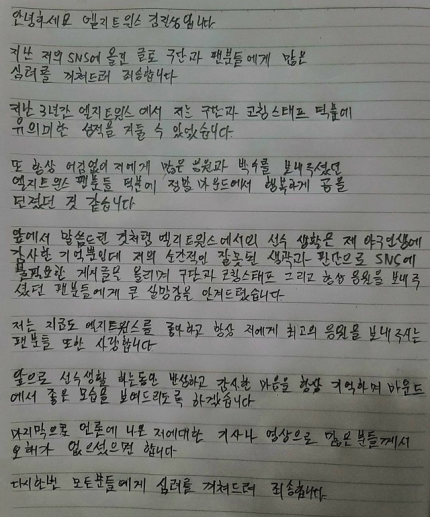 안녕하세요 엘지트윈스 김진성입니다
지난 저의 SNS에 올린 글로 구단과 팬분들에게 많은
심려를 끼쳐드려 죄송합니다
지난 3년간 엘지트윈스 에서 저는 구단과 코칭스태프 덕분에
유의미한 성적을 거둘 수 있었습니다.
또 항상 어김없이 저에게 많은 응원과 박수를 보내주셨던
엘지트윈스 팬분들 덕분에 정말 마운드에서 행복하게 공을
던졌던 것 같습니다
앞에서 말씀드린 것처럼 엘지트윈스에서의 선수 생활은 제 야구인생에
감사한 기억뿐인데 저의 순간적인 잘못된 생각과 판단으로 SNC에
불필요한 게시글을 올리게 구단과 코칭스태프 그리고 항상 응원을 보내주
셨던 팬분들에게 큰 실망감을 안겨드렸습니다
저는 지금도 엘지트윈스를 좋아하고 항상 저에게 최고의 응원을 보내주시는
팬분들 또한 사랑합니다
앞으로 선수생활 하는동안 반성하고 감사한 마음을 항상 기억하며 마운드
에서 좋은 모습을 보여드리도록 하겠습니다
마지막으로 언론에 나온 저에대한 기사나 영상으로 많은분들께서
오해가 없으셨으면 합니다
다시한번 모든분들에게 심려를 끼쳐드려 죄송합니다